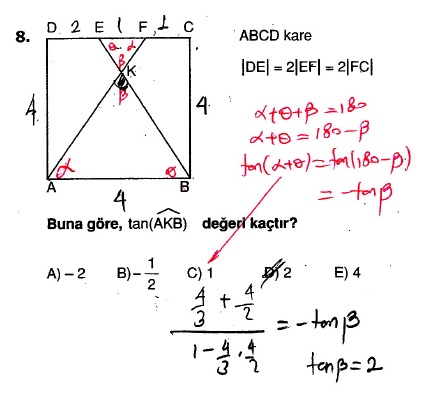 8.
D 2 E 1 F 1 C
θ α
β
K
β
4 4
α θ
A B
4
ABCD kare
|DE| = 2|EF| = 2|FC|
α+θ+β=180
α+θ=180-β
tan(α+θ)=tan(180-β)
= -tanβ
Buna göre, tan(AKB) değeri kaçtır?
A) – 2 B) – 1/2 C) 1 D) 2 E) 4
4/3 + 4/2
1 - 4/3 . 4/2 = -tanβ
tanβ=2